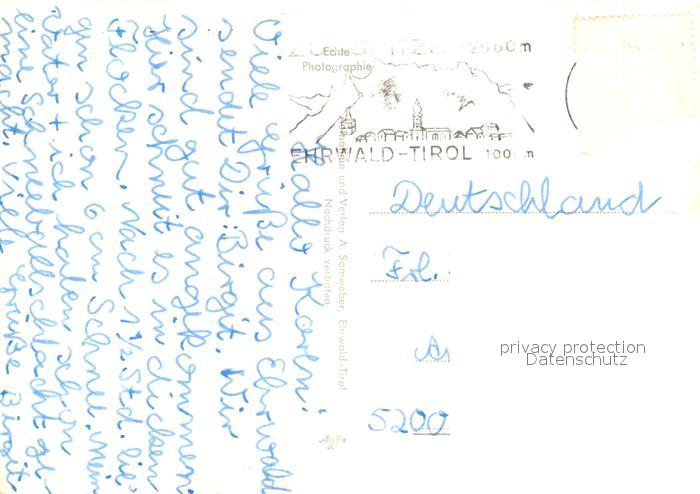 Hallo Karen!
Viele Grüße aus Ehrwald
sendet Dir Birgit. Wir
sind gut angekommen.
Hier schneit es in dicken
Flocken. Nach 1 1/2 Std. lie-
gen schon 6 cm Schnee. Mein
Vater + ich haben schon
eine Schneeballschlacht ge-
macht. Viele Grüße Birgit
Echte
Photographie
2960m
EHRWALD-TIROL 100 m
und Verlag A. Somweber, Ehrwald-Tirol
Nachdruck verboten
Agfa
Deutschland
Frl.
5200
privacy protection
Datenschutz